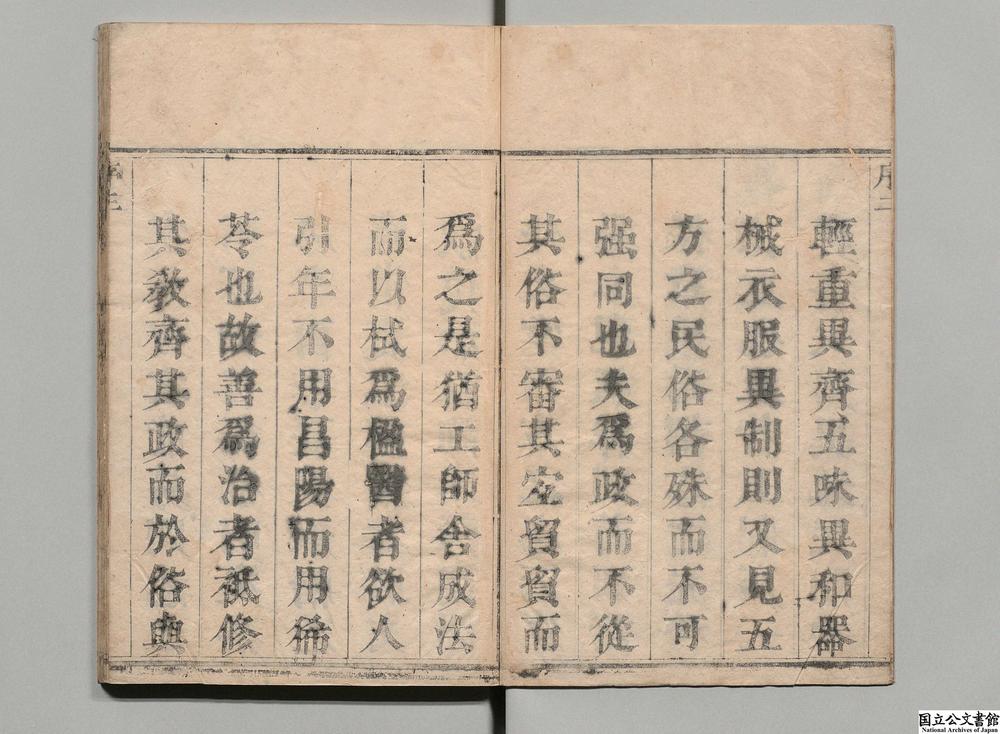 序二
輕重異齊五味異和器
械衣服異制則又見五
方之民俗各殊而不可
强同也夫爲政而不從
其俗不審其宐貿貿而
爲之是猶工師舍成法
而以栻爲楹醫者欲人
引年不用昌陽而用豨
苓也故善爲治者祇修
其敎齊其政而於俗與
序三
国立公文書館
National Archives of Japan